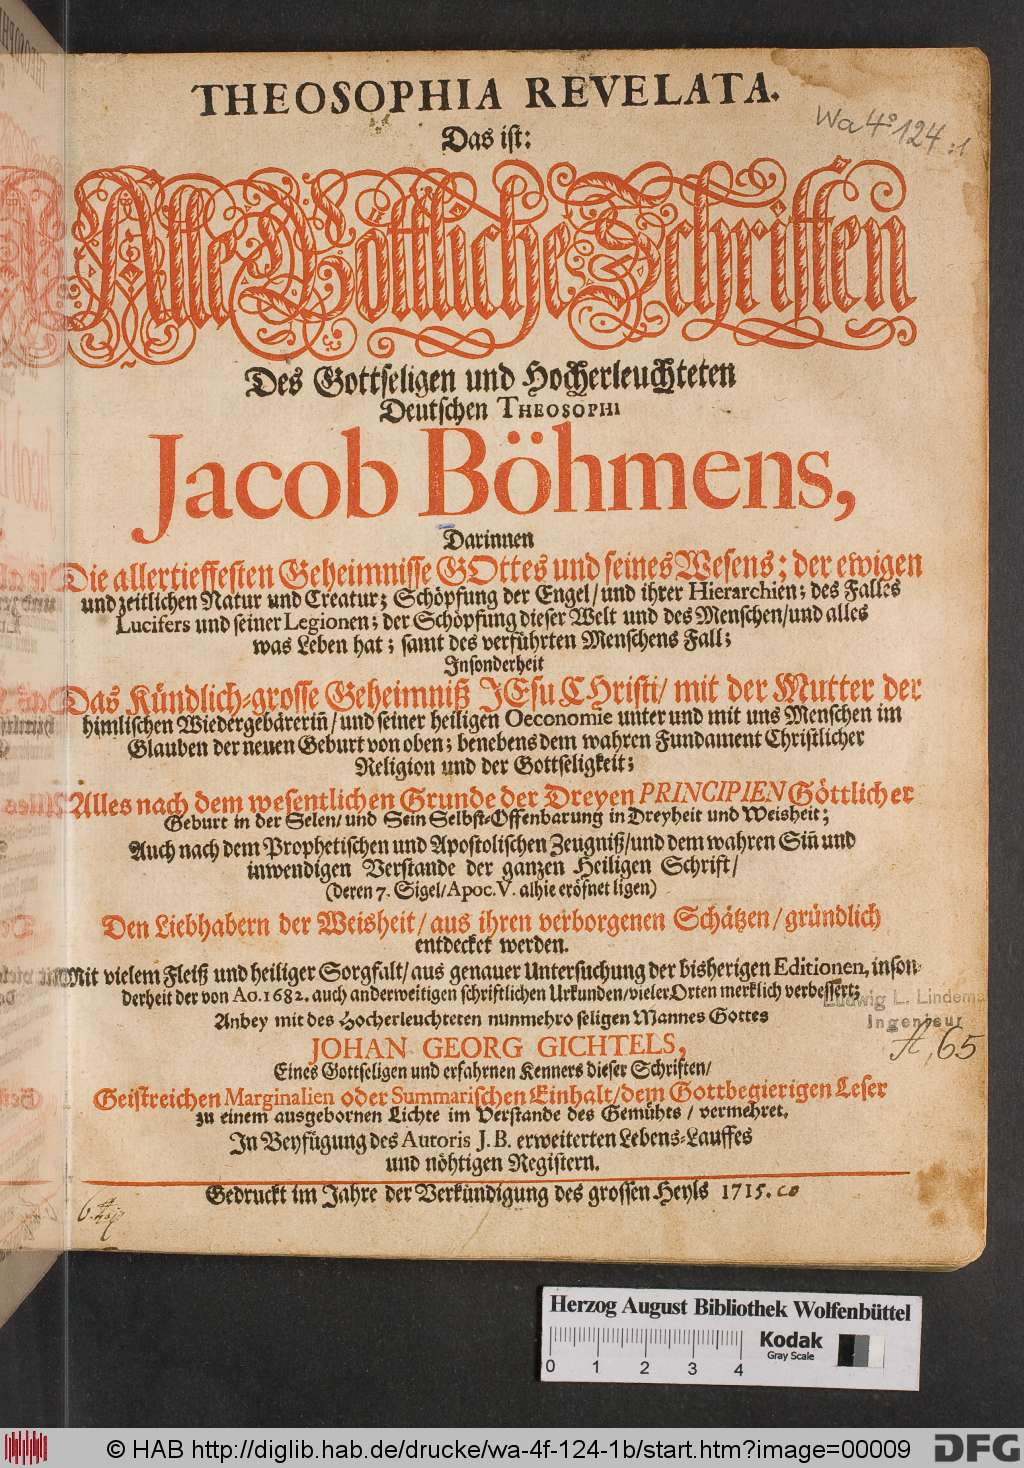 THEOSOPHIA REVELATA.
Wa 4° 124:1
Das ist:
Alle Göttliche Schrifften
Des Gottseligen und Hocherleuchteten
Deutschen THEOSOPHI
Jacob Böhmens,
Darinnen
Die allertieffesten Geheimnisse GOttes und seines Wesens; der ewigen
und zeitlichen Natur und Creatur; Schöpfung der Engel/ und ihrer Hierarchien; des Falles
Lucifers und seiner Legionen; der Schöpfung dieser Welt und des Menschen/ und alles
was Leben hat; samt des verführten Menschens Fall;
Insonderheit
Das Kündlich-grosse Geheimniß JEsu CHristi/ mit der Mutter der
himlischen Wiedergebärerin̄/ und seiner heiligen Oeconomie unter und mit uns Menschen im
Glauben der neuen Geburt von oben; benebens dem wahren Fundament Christlicher
Religion und der Gottseligkeit;
Alles nach dem wesentlichen Grunde der Dreyen PRINCIPIEN Göttlicher
Geburt in der Selen/ und Sein Selbst-Offenbarung in Dreyheit und Weisheit;
Auch nach dem Prophetischen und Apostolischen Zeugniß/ und dem wahren Sin̄ und
inwendigen Verstande der ganzen Heiligen Schrift/
(deren 7. Sigel/ Apoc. V. alhie eröfnet ligen)
Den Liebhabern der Weisheit/ aus ihren verborgenen Schätzen/ gründlich
entdecket werden.
Mit vielem Fleiß und heiliger Sorgfalt/ aus genauer Untersuchung der bisherigen Editionen, inson-
derheit der von Ao. 1682. auch anderweitigen schriftlichen Urkunden/ vieler Orten merklich verbessert;
Ludwig L. Lindema
Anbey mit des Hocherleuchteten nunmehro seligen Mannes Gottes
Ingenieur
JOHAN GEORG GICHTELS,
A, 65
Eines Gottseligen und erfahrnen Kenners dieser Schriften/
Geistreichen Marginalien oder Summarischen Einhalt/ dem Gottbegierigen Leser
zu einem ausgebornen Lichte im Verstande des Gemühts/ vermehret.
In Beyfügung des Autoris J. B. erweiterten Lebens-Lauffes
und nöhtigen Registern.
Gedruckt im Jahre der Verkündigung des grossen Heyls 1715.
Herzog August Bibliothek Wolfenbüttel
0 1 2 3 4
Kodak
Gray Scale
© HAB http://diglib.hab.de/drucke/wa-4f-124-1b/start.htm?image=00009
DFG